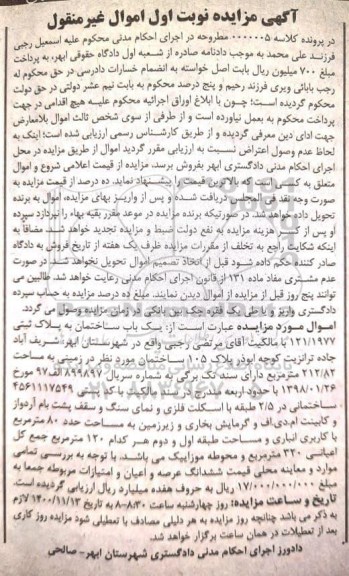 آگهی مزایده نوبت اول اموال غیرمنقول
در پرونده کلاسه ۰۰۰۰۰۰۵ مطروحه در اجرای احکام مدنی محکوم علیه اسمعیل رجبی
فرزند علی محمد به موجب دادنامه صادره از شعبه اول دادگاه حقوقی ابهر، به پرداخت
مبلغ ۷۰۰ میلیون ریال بابت اصل خواسته به انضمام خسارات دادرسی در حق محکوم له
رجب بابائی ویری فرزند رحیم و پنج درصد محکوم به بابت نیم عشر دولتی در حق دولت
محکوم گردیده است؛ چون با ابلاغ اوراق اجرائیه محکوم علیه هیچ اقدامی در جهت
پرداخت محکوم به بعمل نیاورده است و از طرفی از سوی شخص ثالث اموال بلامعارض
جهت ادای دین معرفی گردیده و از طریق کارشناس رسمی ارزیابی شده است؛ اینک به
لحاظ عدم وصول اعتراض نسبت به ارزیابی مقرر گردید اموال از طریق مزایده در محل
اجرای احکام مدنی دادگستری ابهر بفروش برسد. مزایده از قیمت اعلامی شروع و اموال
متعلق به کسی است که بالاترین قیمت را پیشنهاد نماید. ده درصد از قیمت مزایده به
صورت وجه نقد فی المجلس دریافت شده و پس از واریز بهای مزایده، اموال به برنده
تحویل داده خواهد شد. در صورتیکه برنده مزایده در موعد مقرر بقیه بهاء را نپردازد سپرده
او پس از کسر هزینه مزایده به نفع دولت ضبط و مزایده تجدید خواهد شد. مضافاً به
اینکه شکایات راجع به تخلف از مقررات مزایده ظرف یک هفته از تاریخ فروش به دادگاه
صادر کننده حکم داده شود قبل از اتخاذ تصمیم اموال تحویل نخواهد شد. در صورت
عدم مشتری مفاد ماده ۱۳۱ از قانون اجرای احکام مدنی رعایت خواهد شد. طالبین می
توانند پنج روز قبل از مزایده از اموال دیدن نمایند. مبلغ ده درصد مزایده به حساب سپرده
دادگستری واریز و یا طی یک فقره چک بین بانکی در زمان مزایده وصول می گردد.
اموال مورد مزایده عبارت است از: یک باب ساختمان به پلاک ثبتی
۱۲۱/۱۹۷۷ با مالکیت آقای مرتضی رجبی واقع در شهرستان ابهر شریف آباد
جاده ترانزیت کوچه ابوذر پلاک ۱۰۵ ساختمان مورد نظر در زمینی به مساحت
۲۱۲/۸۲ مترمربع دارای سند تک برگی به شماره سریال ۸۹۹۸۹۷ الف ۹۷ مورخ
۱۳۹۸/۰۱/۲۶ با حدود اربعه مندرج در سند مالکیت با کد پستی ۴۵۶۱۱۱۷۵۴۹
ساختمانی در ۲/۵ طبقه با اسکلت فلزی و نمای سنگ و سقف پشت بام آردواز
و کابینت ام.دی.اف و گرمایش بخاری و زیرزمین به مساحت حدد ۸۰ مترمربع
با کاربری انباری و مساحت طبقه اول و دوم هر کدام ۱۲۰ مترمربع جمع کل
اعیانی ۳۲۰ مترمربع و محوطه موزاییک می باشد. با توجه به بررسی تمامی
موارد و معاینه محلی قیمت ششدانگ عرصه و اعیان و امتیازات مربوطه جمعا به
مبلغ ۱۷/۰۰۰/۰۰۰/۰۰۰ ریال به حروف هفده میلیارد ریال ارزیابی گردیده است.
تاریخ و ساعت مزایده: روز چهارشنبه ساعت ۸:۳۰-۸ به تاریخ ۱۴۰۰/۱۱/۱۳ لازم
به ذکر می باشد چنانچه روز مزایده به هر دلیلی مصادف با تعطیلی شود مزایده روز کاری
بعد از تعطیلات در همان ساعت برگزار خواهد شد.
دادورز اجرای احکام مدنی دادگستری شهرستان ابهر- صالحی